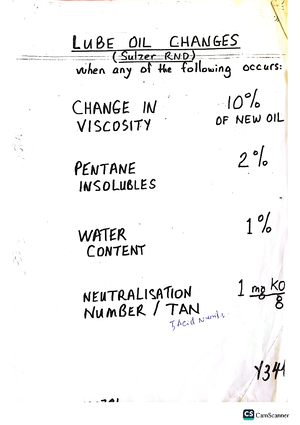 LUBE OIL CHANGES
(Sulzer RND)
when any of the following occurs:
CHANGE IN 10%
VISCOSITY OF NEW OIL
PENTANE 2%
INSOLUBLES
WATER 1%
CONTENT
NEUTRALISATION 1 mg KO
NUMBER / TAN g
Acid
Y344
CS CamScanner